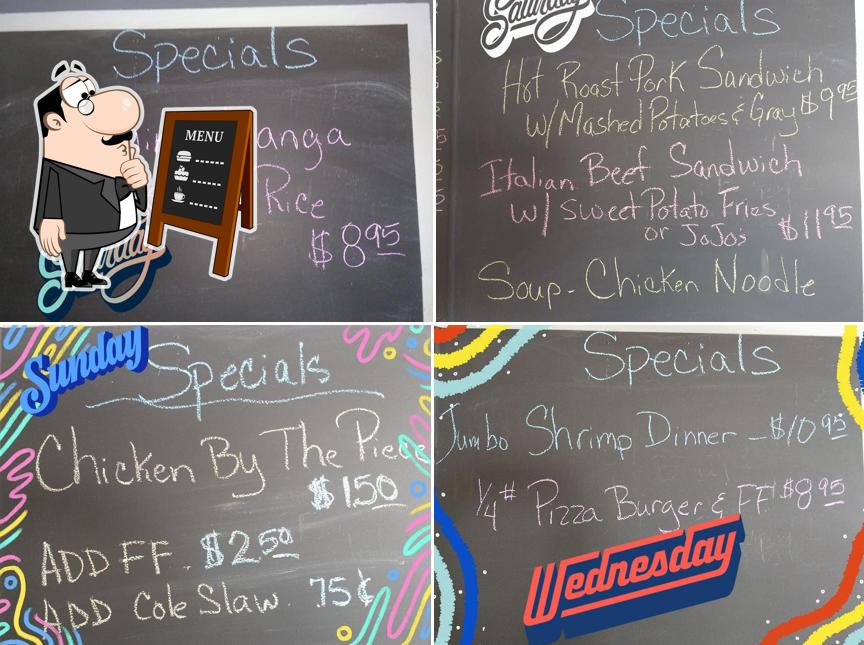 Specials
MENU
anga
Rice
$8.95
Saturday
Specials
Hot Roast Pork Sandwich
w/Mashed Potatoes & Gravy $9.95
Italian Beef Sandwich
w/ Sweet Potato Fries
or JoJo's $11.95
Soup - Chicken Noodle
Sunday
Specials
Chicken By The Piece
$1.50
ADD FF. $2.50
ADD Cole Slaw. 75¢
Specials
Jumbo Shrimp Dinner - $10.95
1/4# Pizza Burger & FF $8.95
Wednesday